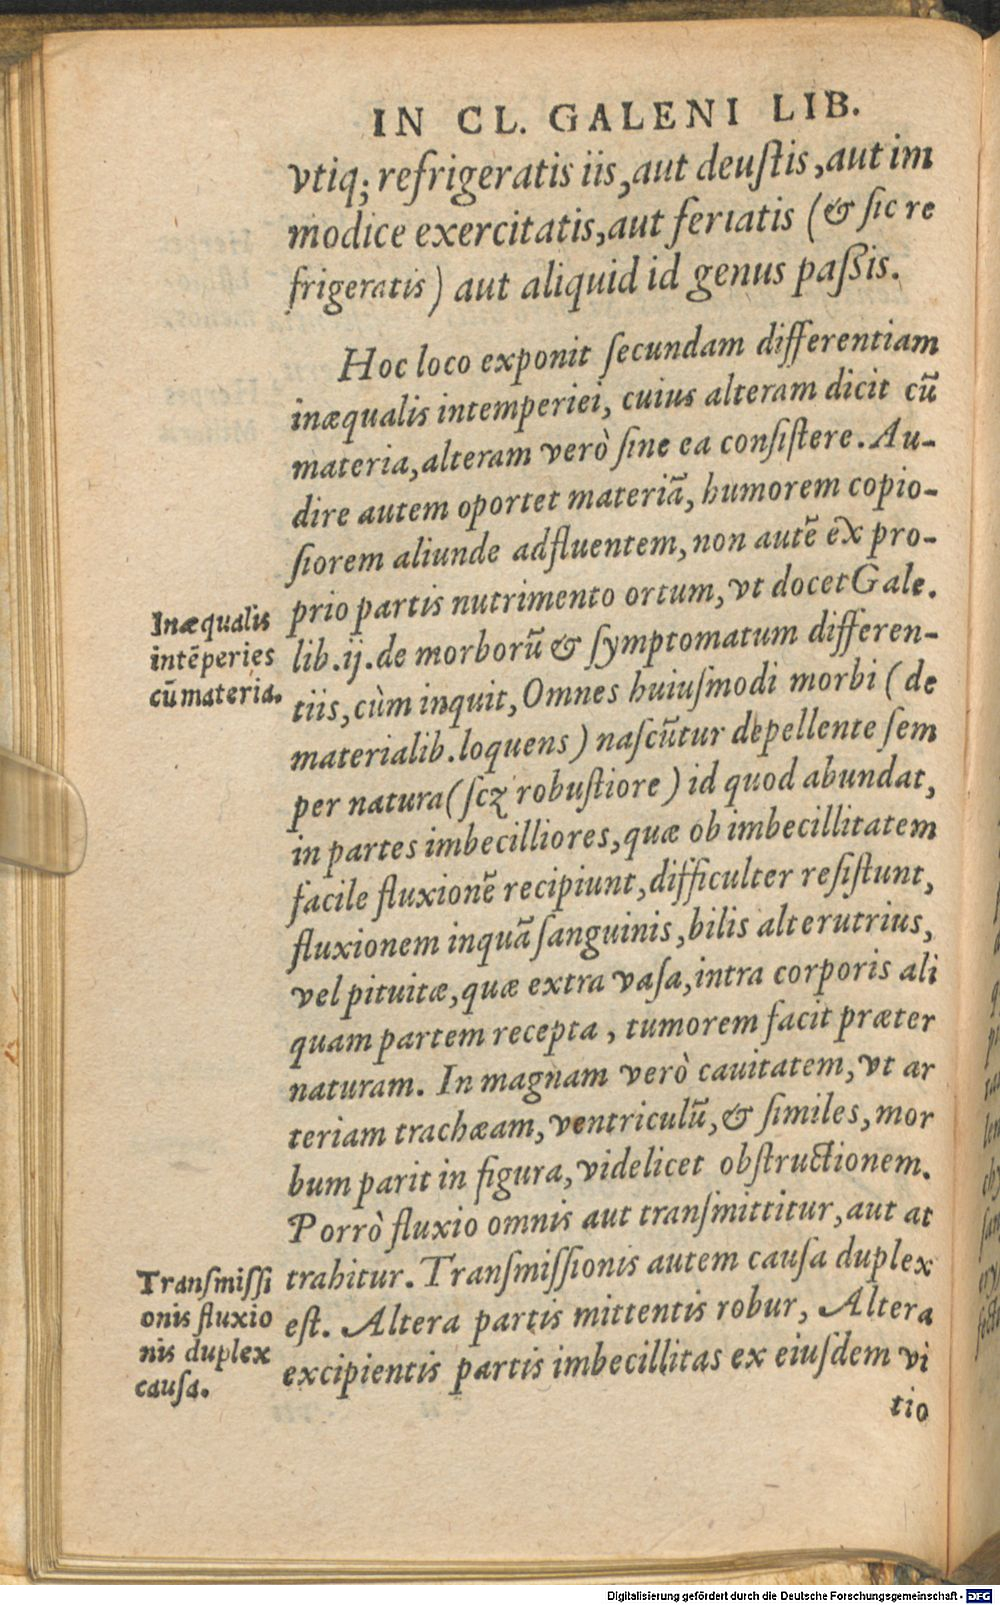 IN CL. GALENI LIB.
vtiq; refrigeratis iis, aut deustis, aut im
modice exercitatis, aut feriatis (& sic re
frigeratis) aut aliquid id genus paßis.
Hoc loco exponit secundam differentiam
inæqualis intemperiei, cuius alteram dicit cũ
materia, alteram verò sine ea consistere. Au-
dire autem oportet materiã, humorem copio-
siorem aliunde adfluentem, non autẽ ex pro-
prio partis nutrimento ortum, vt docet Gale.
Inæqualis
intẽperies
cũ materia.
lib. ij. de morborũ & symptomatum differen-
tiis, cùm inquit, Omnes huiusmodi morbi (de
materialib. loquens) nascũtur depellente sem
per natura (scꝫ robustiore) id quod abundat,
in partes imbecilliores, quæ ob imbecillitatem
facile fluxionẽ recipiunt, difficulter resistunt,
fluxionem inquã sanguinis, bilis alterutrius,
vel pituitæ, quæ extra vasa, intra corporis ali
quam partem recepta, tumorem facit præter
naturam. In magnam verò cauitatem, vt ar
teriam trachæam, ventriculũ, & similes, mor
bum parit in figura, videlicet obstructionem.
Porrò fluxio omnis aut transmittitur, aut at
trahitur. Transmissionis autem causa duplex
est. Altera partis mittentis robur, Altera
excipientis partis imbecillitas ex eiusdem vi
Transmissi
onis fluxio
nis duplex
causa.
tio
Digitalisierung gefördert durch die Deutsche Forschungsgemeinschaft - DFG